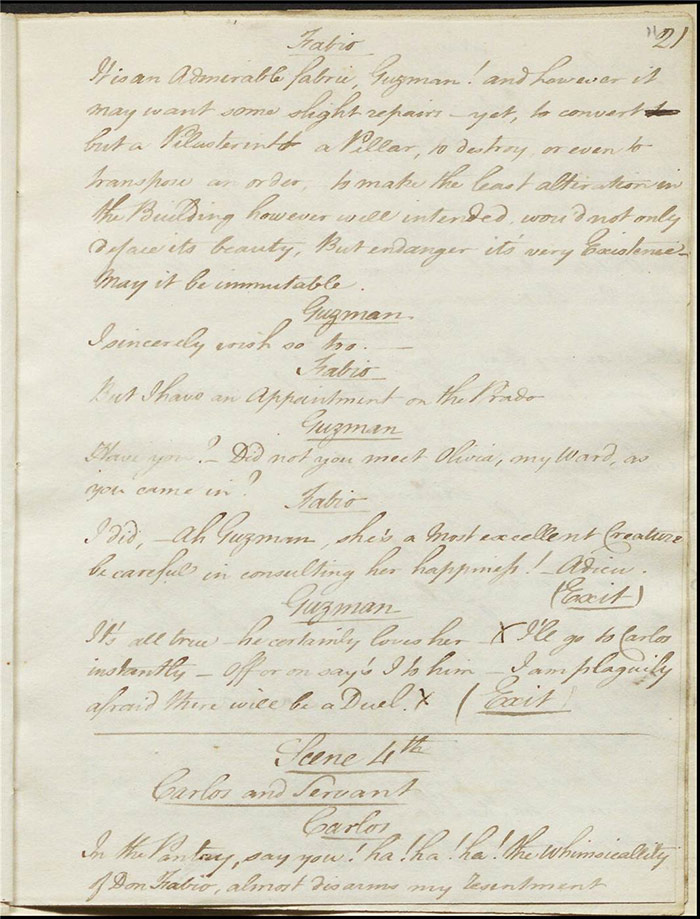 21
Fabio
It is an Admirable fabric, Guzman! and however it
may want some slight repairs – yet, to convert
but a Pilaster into a Pillar, to destroy, or even to
transpose an order, to make the least alteration in
the Building however well intended, wou'd not only
Deface its beauty, But endanger it's very Existence –
May it be immutable.
Guzman.
I sincerely wish so too. –
Fabio
But I have an Appointment on the Prado
Guzman
Have you? – Did not you meet Olivia, my Ward, as
you came in?
Fabio
I did, – Ah Guzman, she's a Most excellent Creature
be careful in consulting her happiness! – Adieu.
(Exit)
Guzman
It's all true – he certainly loves her – X I'll go to Carlos
instantly – Off or on say's I to him – I am plaguily
afraid there will be a Duel. X (Exit)
Scene 4th
Carlos and Servant
Carlos
In the Pantry, say you! ha! ha! ha! the Whimsicallity
of Don Fabio, almost disarms my resentment